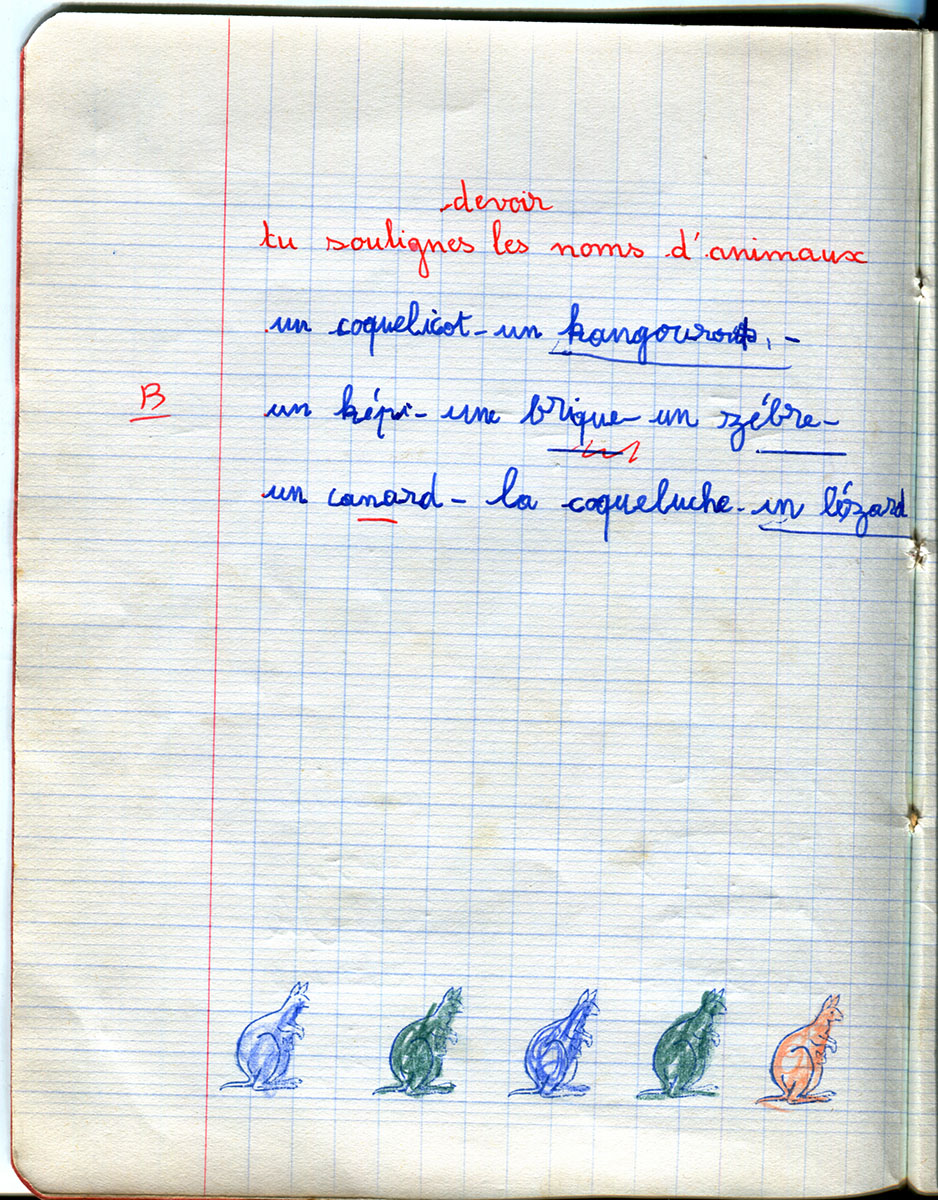 devoir
tu soulignes les noms d'animaux
un coquelicot - un kangourou. -
B
un képi - une brique - un zébre -
un canard - la coqueluche - un lézard